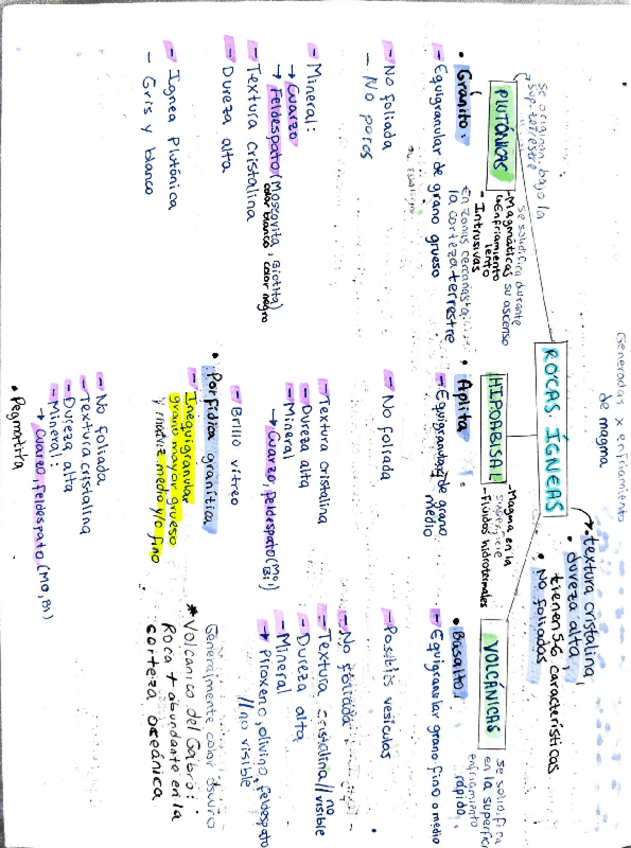 Generadas x enfriamiento
de magma
ROCAS ÍGNEAS
textura cristalina,
• dureza alta,
tienen 5-6 características
• No foliadas
Se originan bajo la
sup. terrestre
PLUTÓNICAS
se solidifica durante
- Magmáticas su ascenso
enfriamiento
lento
- Intrusivas
En zonas cercanas a
la corteza terrestre
• Granito:
- Equigranular de grano grueso
- No foliada
- No poros
- Mineral:
→ Cuarzo
→ Feldespato (Moscovita, Biotita)
color blanco, color negro
- Textura cristalina
- Dureza alta
- Ígnea Plutónica
- Gris y blanco
HIPOABISAL
- Magma en la
superficie
- Fluidos hidrotermales
• Aplita
- Equigranular de grano
medio
- No foliada
- Textura cristalina
- Dureza alta
- Mineral
→ Cuarzo, feldespato (Mo,
Bi)
- Brillo vítreo
• Porfídica granítica
- Inequigranular
grano mayor grueso
y matriz medio y/o fino
- No foliada
- Textura cristalina
- Dureza alta
- Mineral:
→ Cuarzo, feldespato (Mo, Bi)
• Pegmatita
VOLCÁNICAS
se solidifica
en la superficie
enfriamiento
rápido
• Basalto
- Equigranular grano fino o medio
- Posibles vesículas
- No foliada
- Textura cristalina // no
visible
- Dureza alta
- Mineral
→ Piroxeno, olivino, feldespato
// no visible
Generalmente color oscuro
* Volcánico del Gabro:
Roca + abundante en la
corteza oceánica